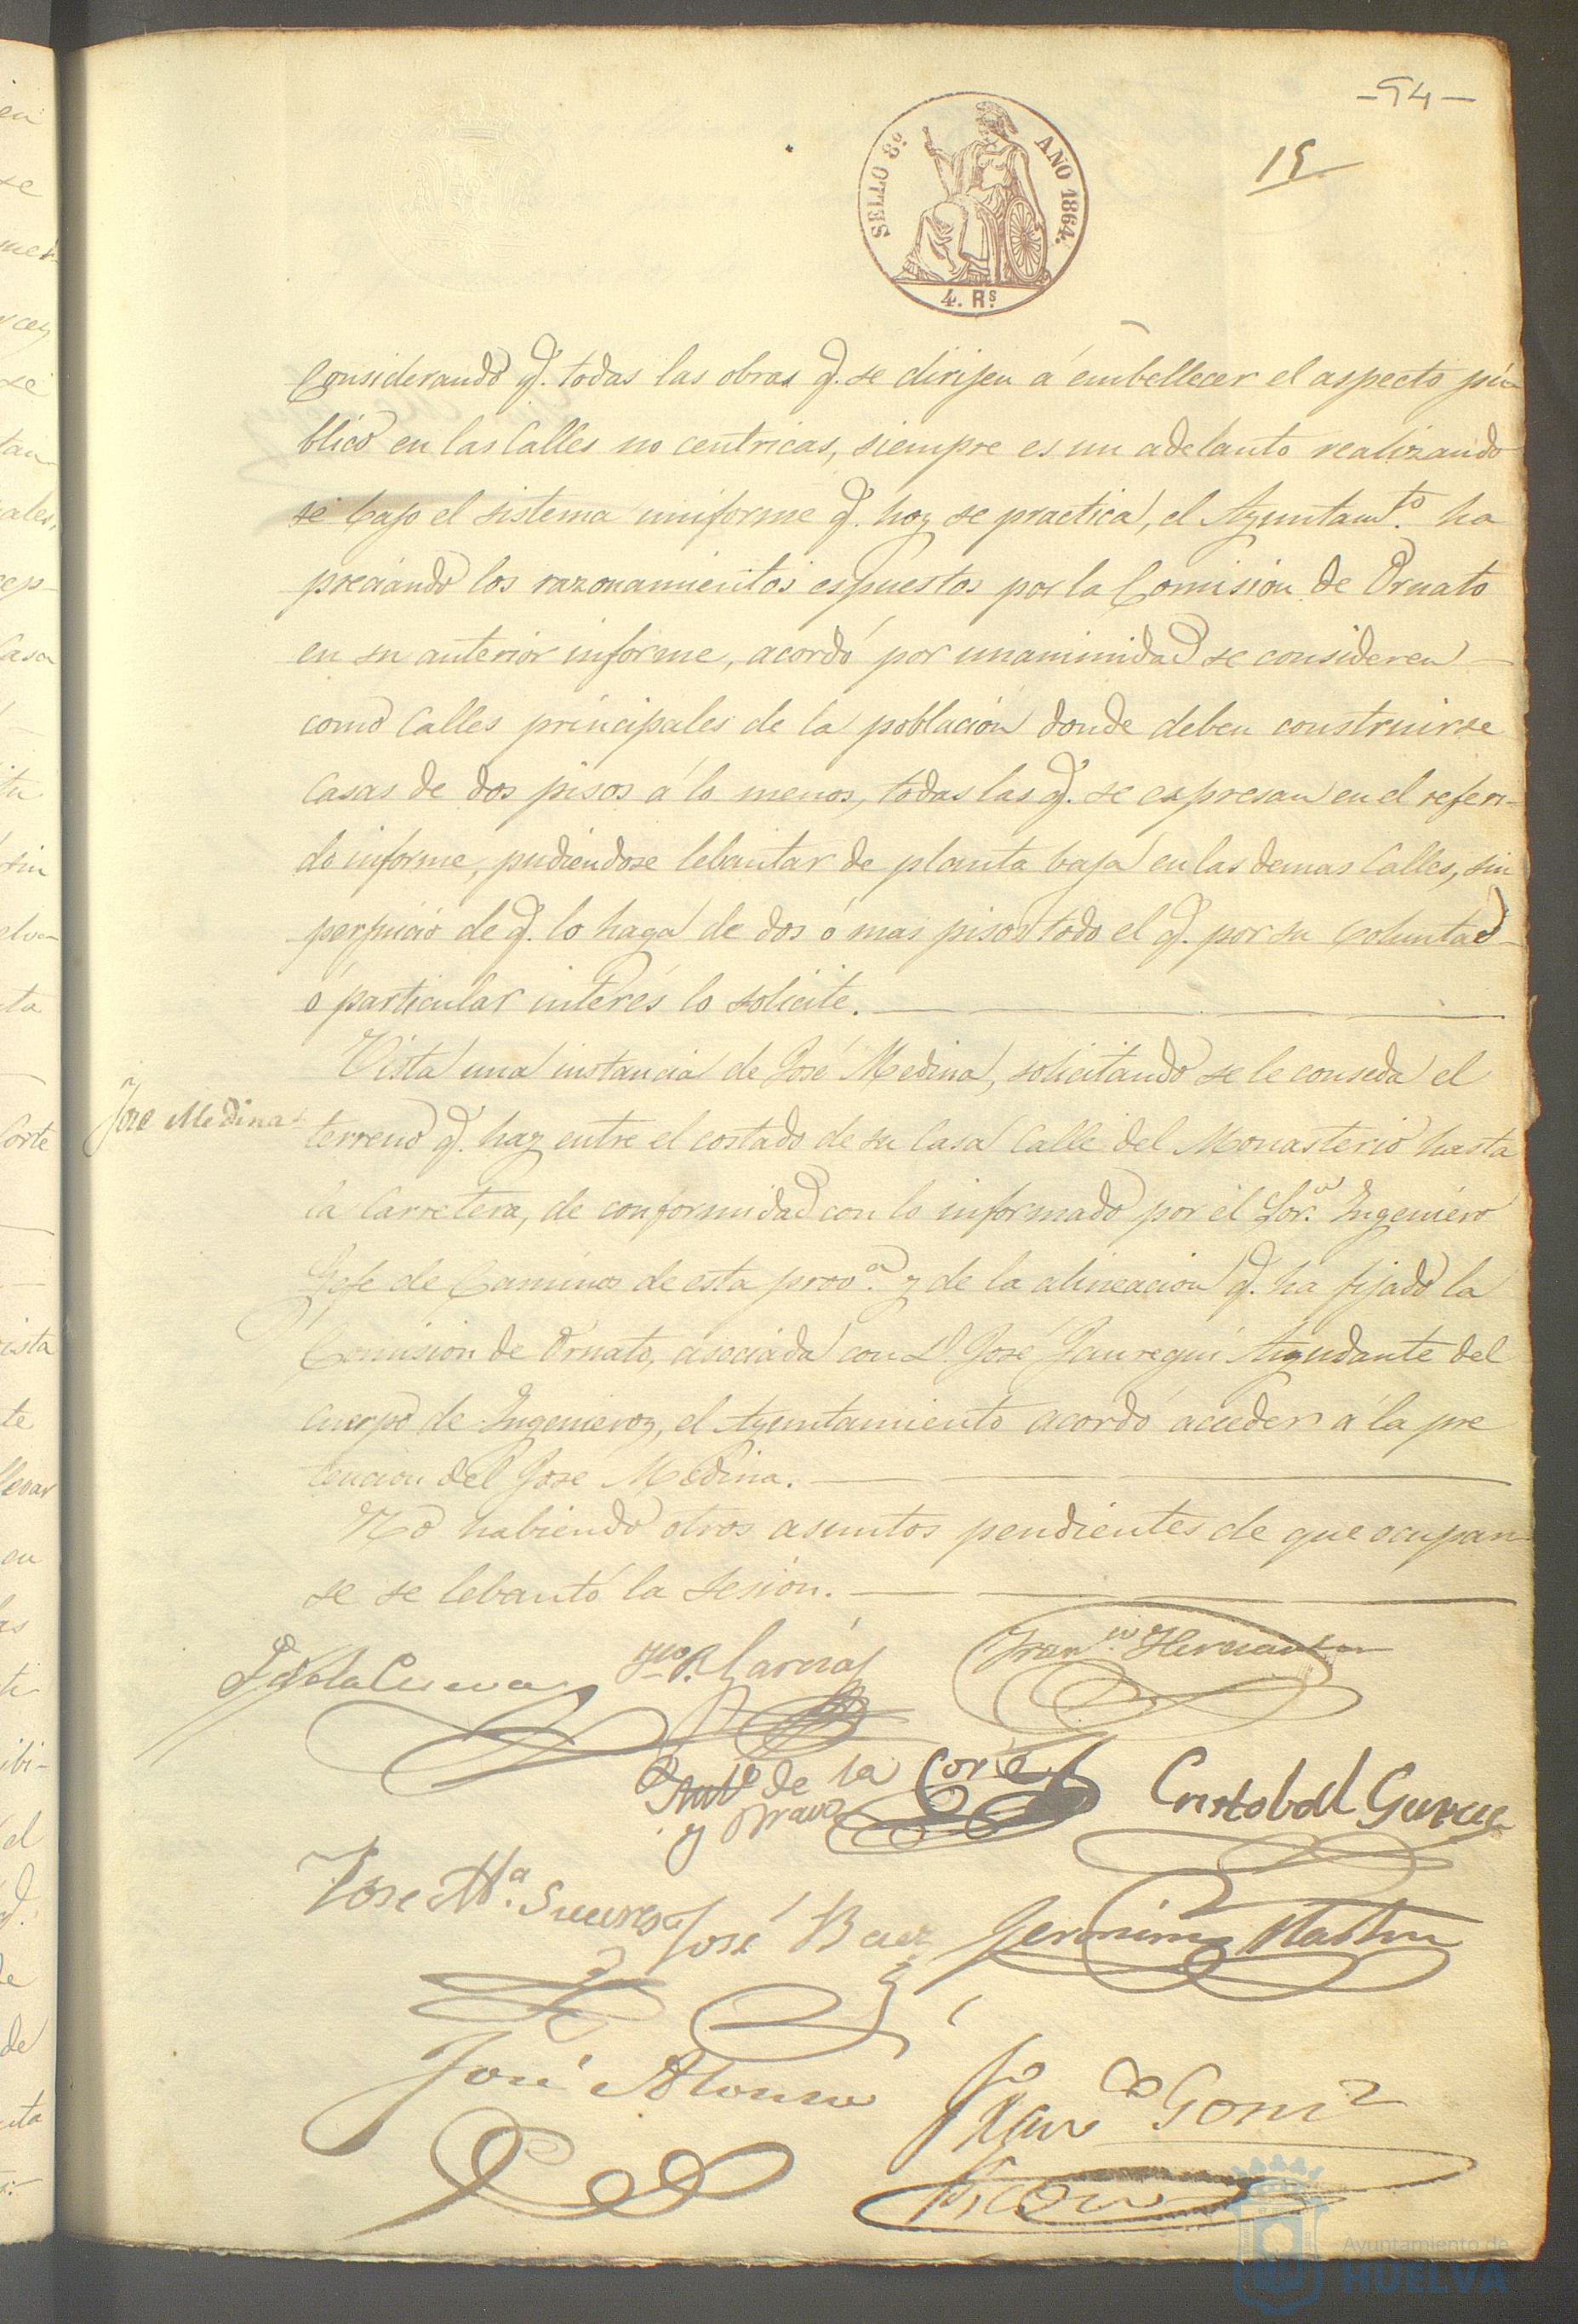 -94-
15
SELLO 8º AÑO 1864.
4. Rs.
Considerando q. todas las obras q. se dirijen á embellecer el aspecto pú-
blico en las Calles no centricas, siempre es un adelanto realizando
se bajo el sistema uniforme q. hoy se practica, el Ayuntamto. ha
preciando los razonamientos espuestos por la Comision de Ornato
en su anterior informe, acordó por unanimidad se consideren
como Calles principales de la poblacion donde deben construirse
Casas de dos pisos á lo menos, todas las q. se expresan en el referi-
do informe, pudiendose lebantar de planta baja en las demas Calles, sin
perjuicio de q. lo haga de dos ó mas pisos todo el q. por su boluntad
ó particular interés lo solicite.
Vista una instancia de José Medina, solicitando se le conseda el
Jose Medina
terreno q. hay entre el costado de su Casa Calle del Monasterio hasta
la Carretera, de conformidad con lo informado por el Sor. Ingeniero
Gefe de Caminos de esta prova. y de la alineacion q. ha fijado la
Comision de Ornato, asociada con D. José Jauregui Ayudante del
cuerpo de Ingenieros, el Ayuntamiento acordó acceder á la pre
tencion del José Medina.
No habiendo otros asuntos pendientes de que ocupar-
se se lebantó la sesion.
de la Cueva
García
Franco. Hernandez
Anto. de la Corte
y Bravo
Cristobal Garcia
José Ma. Suarez
José Baez
Geronimo Martin
José Alonso
Franco Gomez
Ayuntamiento de
HUELVA